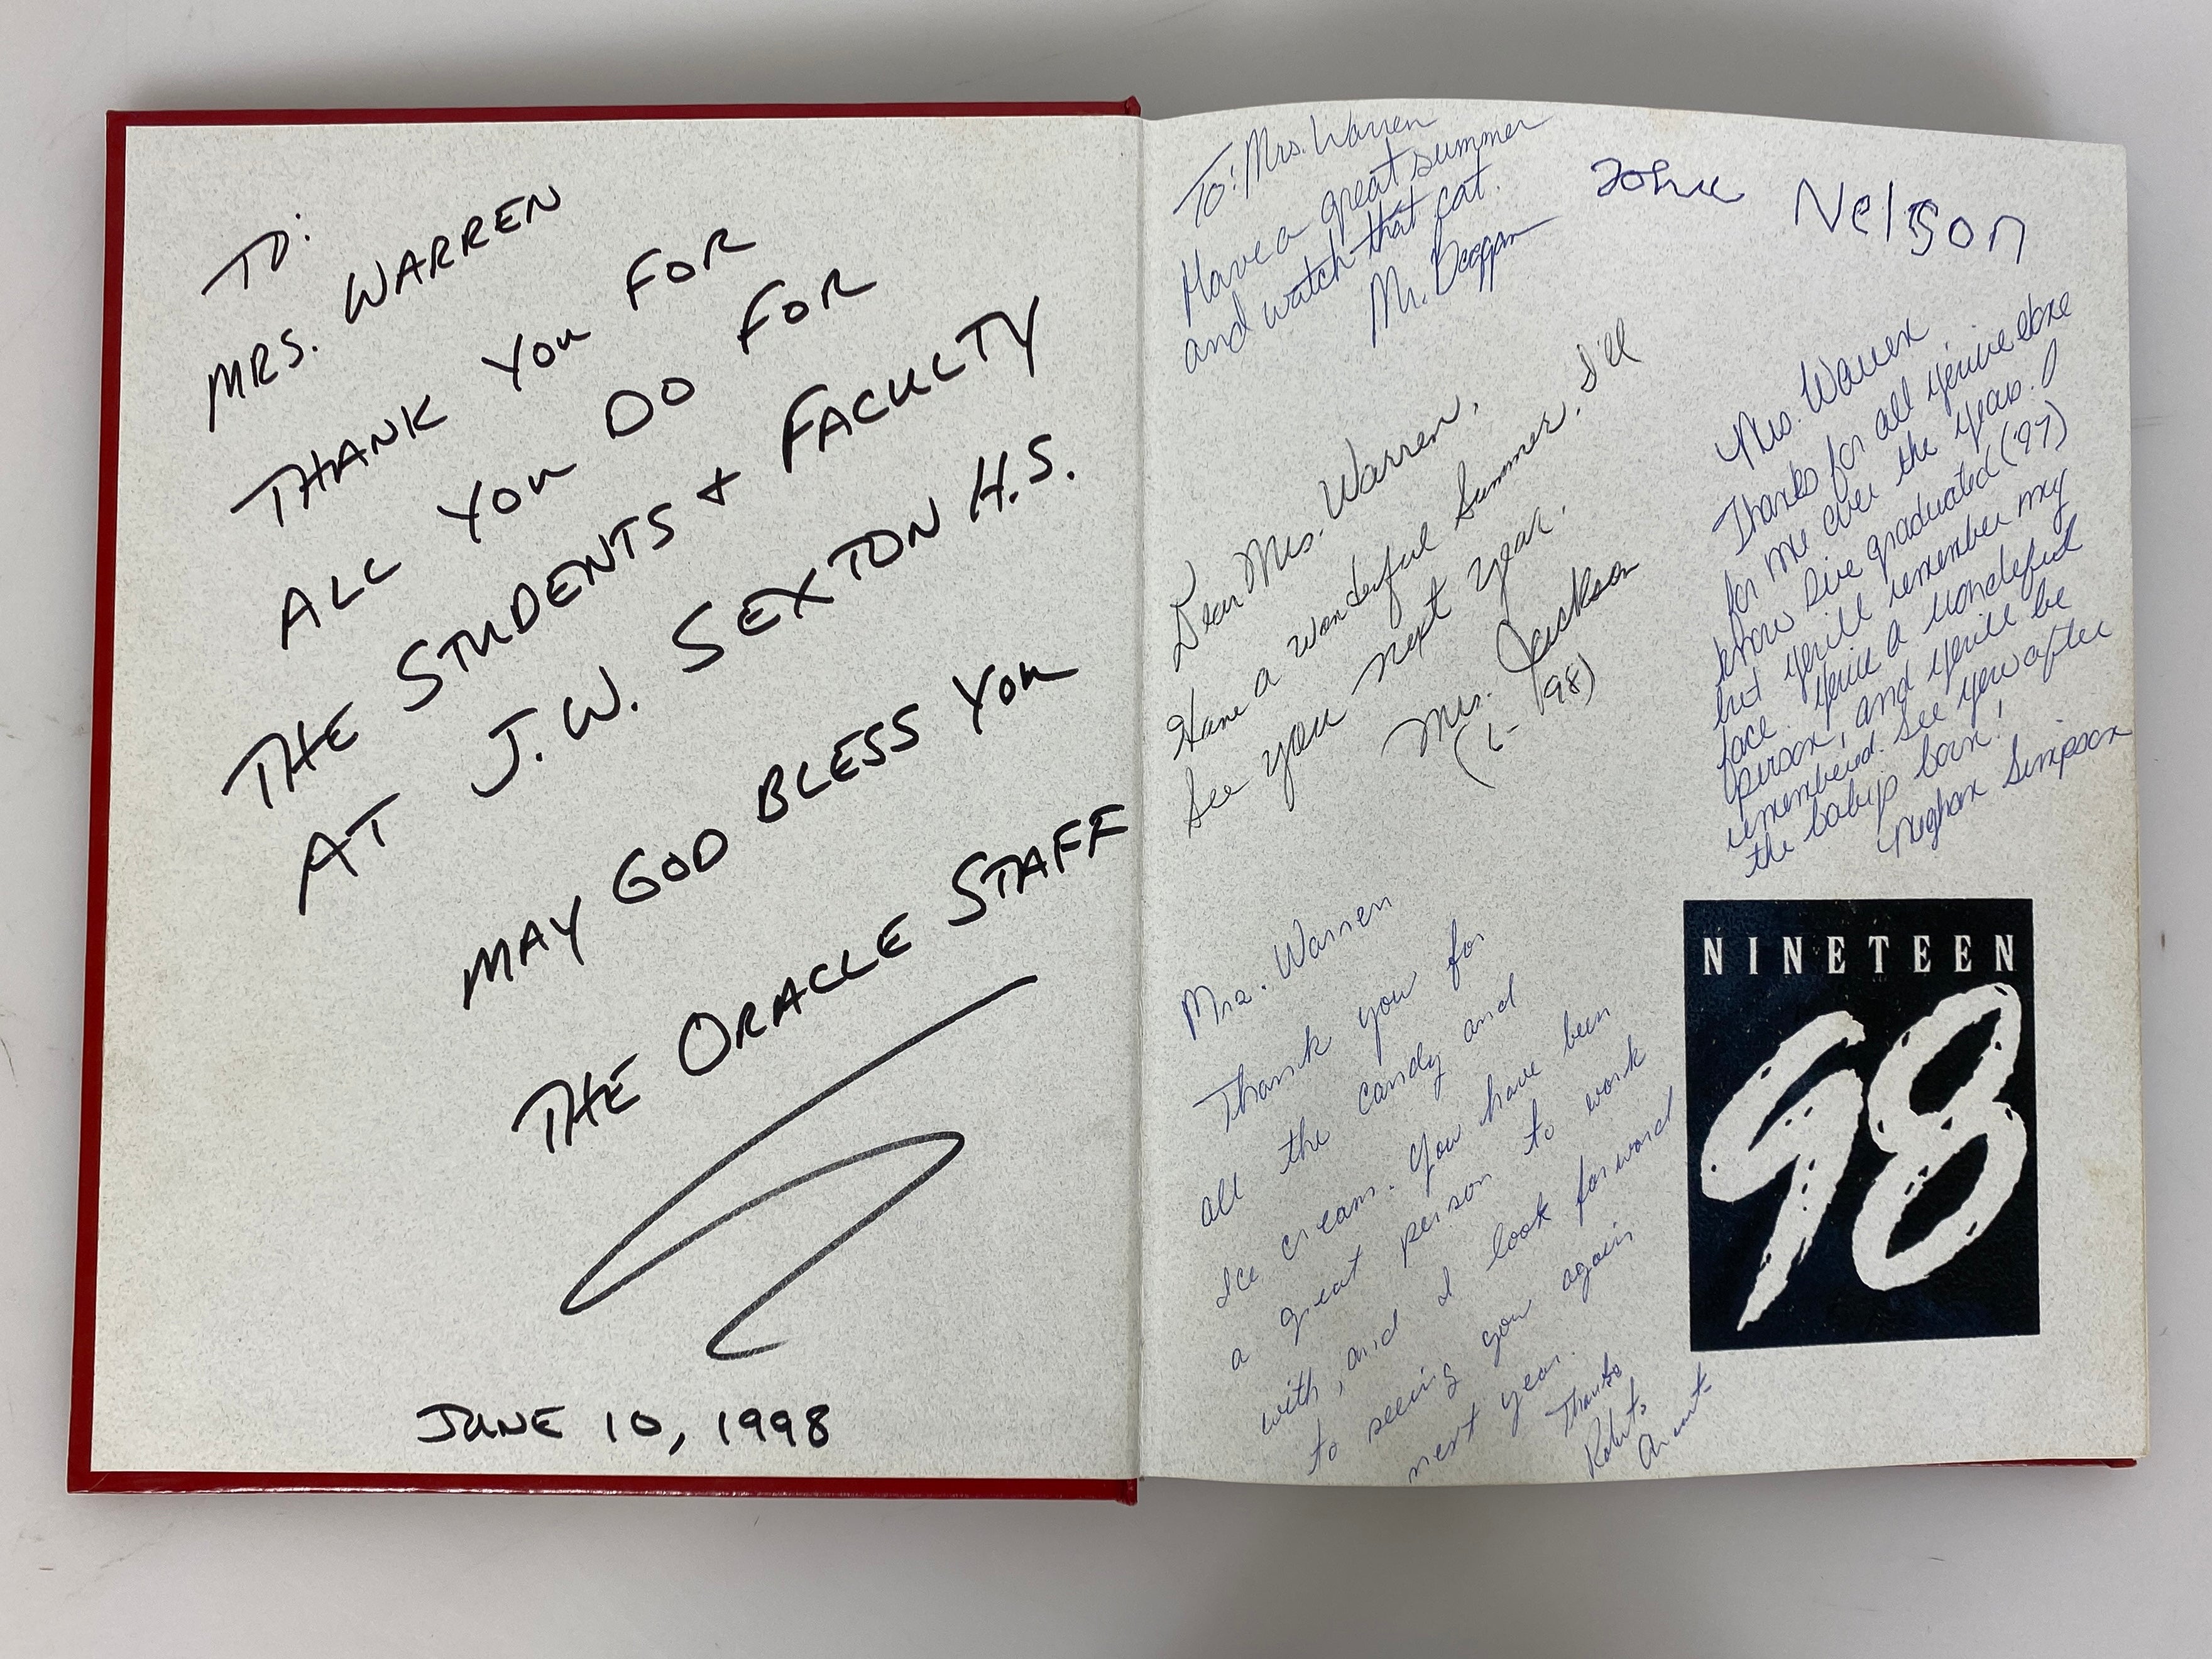 TO:
MRS. WARREN
THANK YOU FOR
ALL YOU DO FOR
THE STUDENTS + FACULTY
AT J.W. SEXTON H.S.
MAY GOD BLESS YOU
THE ORACLE STAFF
JUNE 10, 1998
To: Mrs. Warren
Have a great summer
and watch that cat.
Mr.
John Nelson
Dear Mrs. Warren,
Have a wonderful Summer. I'll
see you next year.
Mrs. Jackson
(6-'98)
Mrs. Warren
Thanks for all you've done
for me over the years. I
know I've graduated ('97)
but you'll remember my
face. You're a wonderful
person, and you'll be
remembered. See you after
the baby's born!
Meghan Simpson
Mrs. Warren
Thank you for
all the candy and
Ice cream. You have been
a great person to work
with, and I look forward
to seeing you again
next year.
Thanks
NINETEEN
98